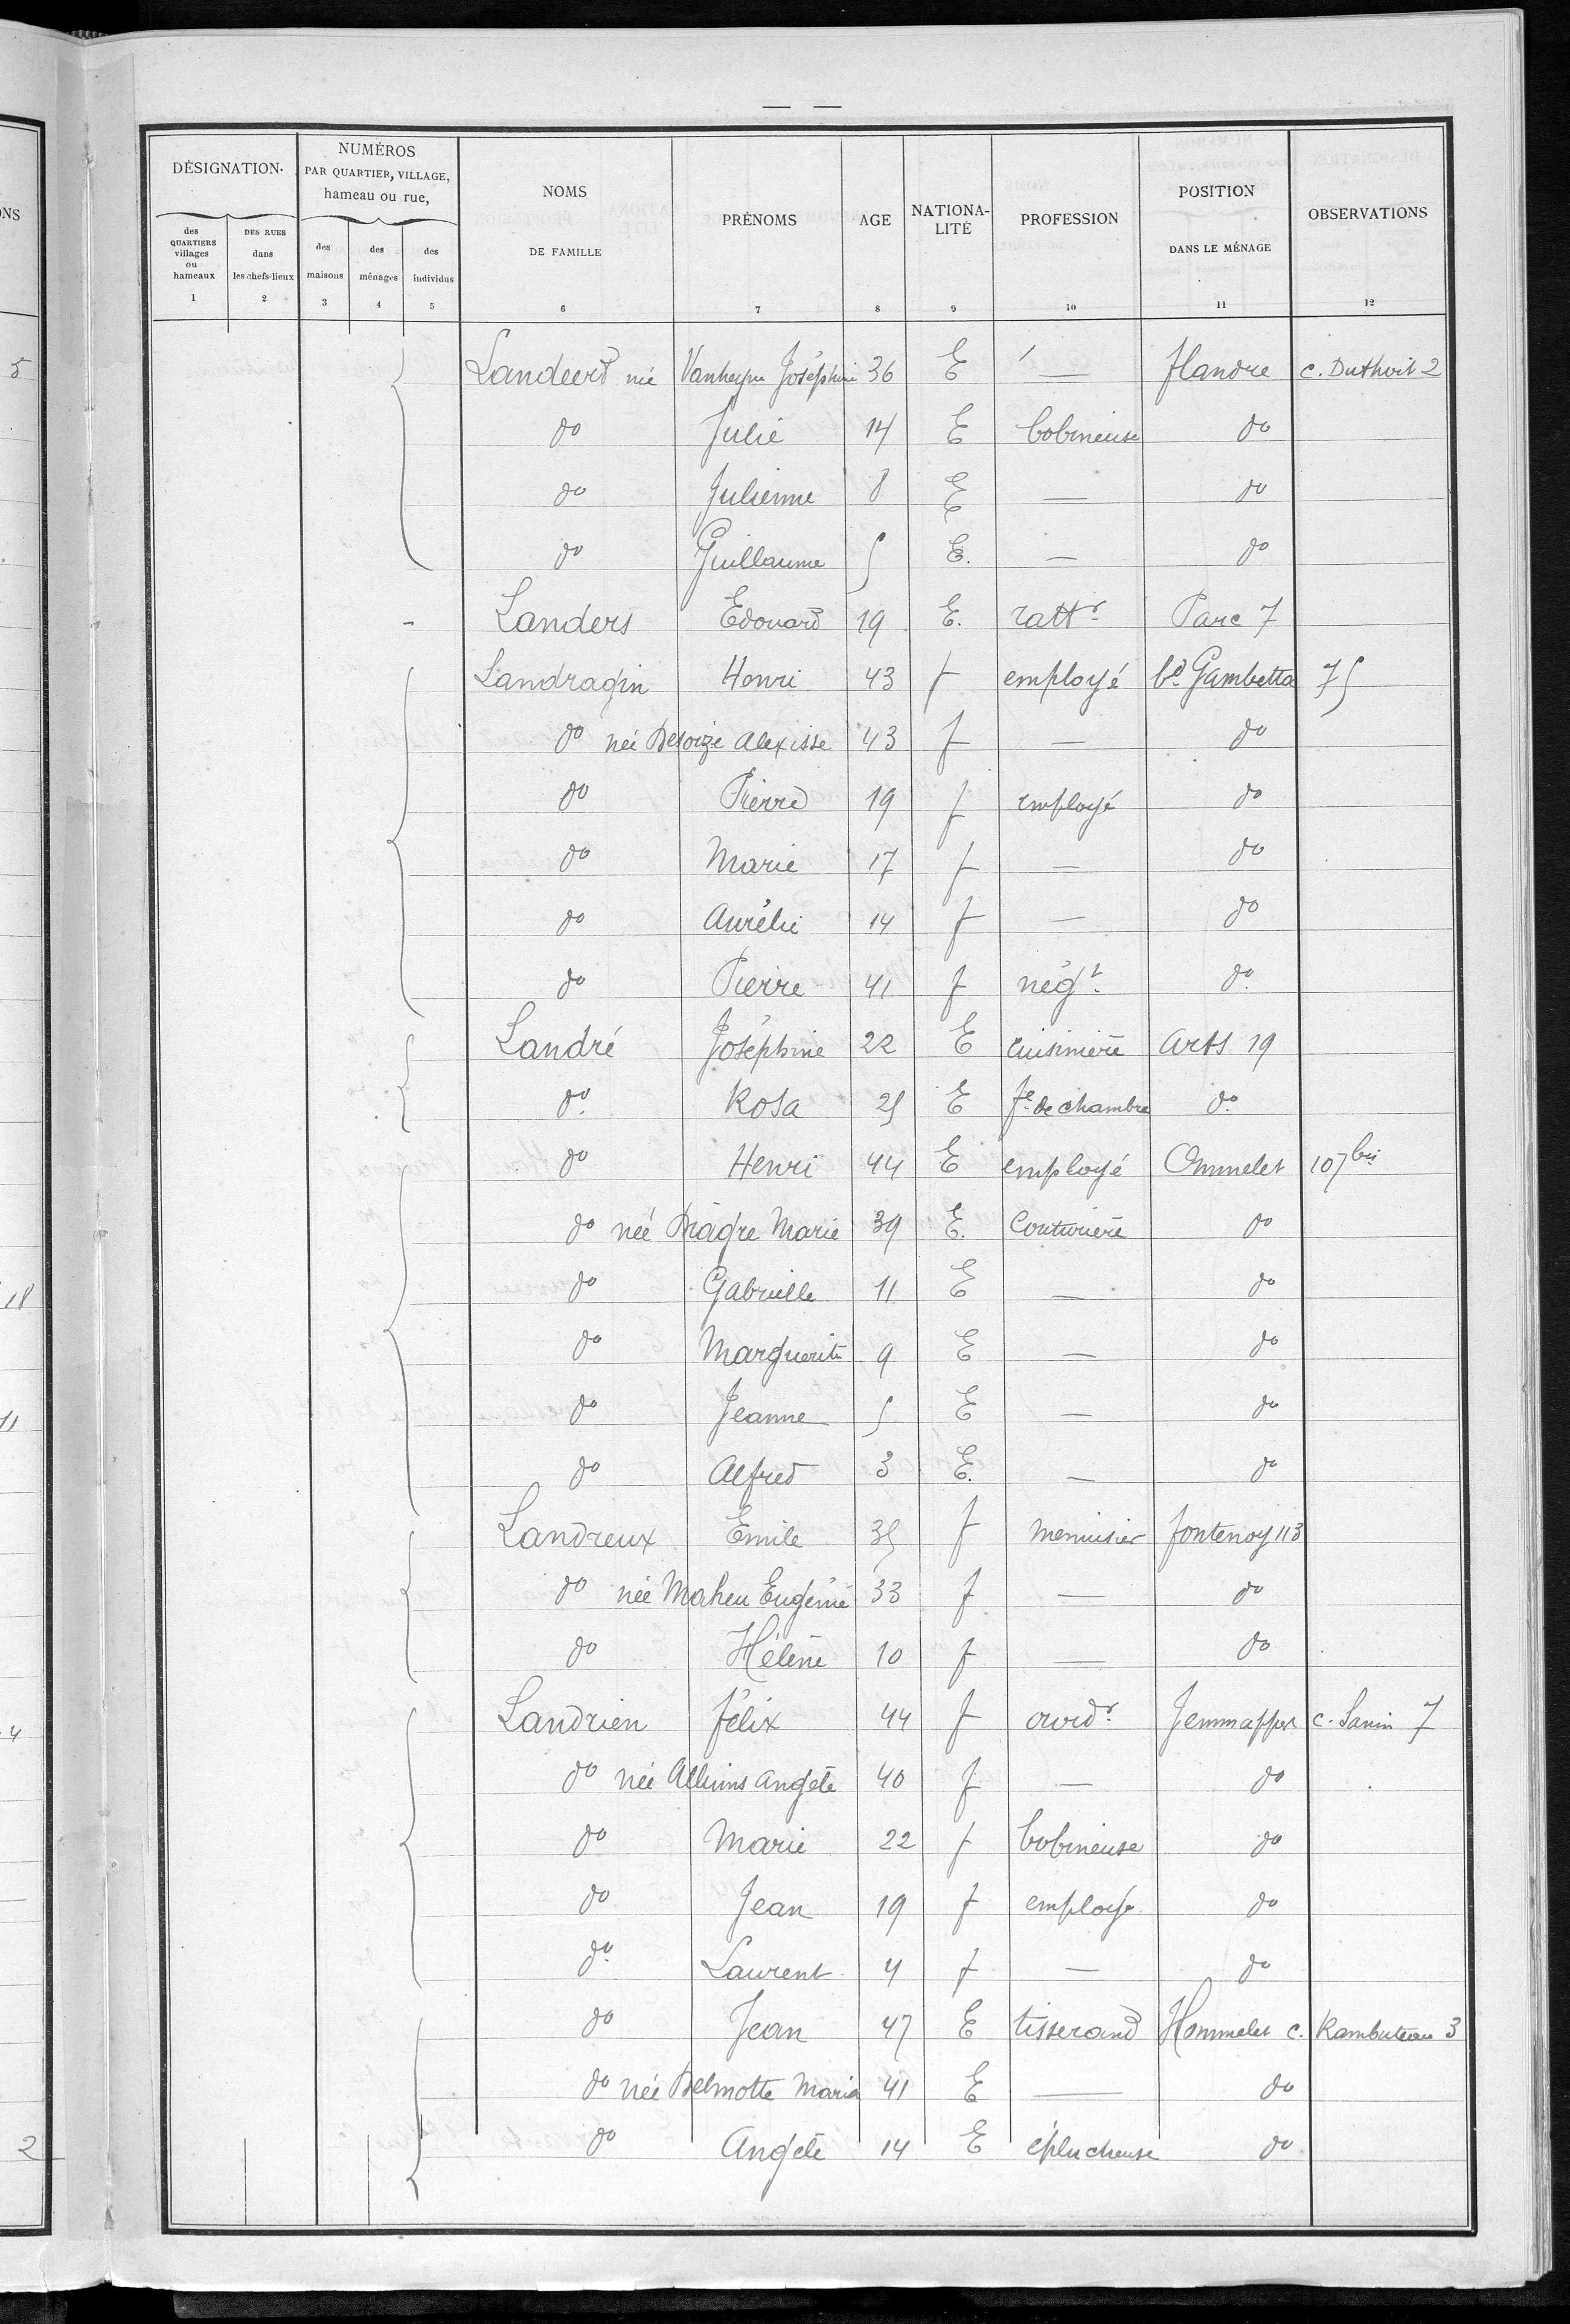 — —
DÉSIGNATION. NUMÉROS PAR QUARTIER, VILLAGE, hameau ou rue, NOMS DE FAMILLE PRÉNOMS AGE NATIONA-LITÉ PROFESSION POSITION DANS LE MÉNAGE OBSERVATIONS
des QUARTIERS villages ou hameaux DES RUES dans les chefs-lieux des maisons des ménages des individus
1 2 3 4 5 6 7 8 9 10 11 12
Landeerd née Vanheyn Joséphine 36 E — Flandre c. Duthoit 2
do Julie 14 E bobineuse do
do Julienne 8 E — do
do Guillaume 5 E. — do
Landers Edouard 19 E. rattr Parc 7
Landragin Henri 43 f employé bd Gambetta 75
do née Desoize Alexisse 43 f — do
do Pierre 19 f employé do
do Marie 17 f — do
do Aurélie 14 f — do
do Pierre 41 f négt do
Landré Joséphine 22 E cuisinière Arts 19
do Rosa 25 E fe de chambre do
do Henri 44 E employé Ommelet 107 bis
do née Diagre Marie 39 E. Couturière do
do Gabrielle 11 E — do
do Marguerite 9 E — do
do Jeanne 5 E — do
do Alfred 3 E. — do
Landreux Emile 35 f menuisier fontenoy 113
do née Maheu Eugénie 33 f — do
do Hélène 10 f — do
Landrien félix 44 f ourdr Jemmappes c. Sanin 7
do née Angèle 40 f — do
do Marie 22 f bobineuse do
do Jean 19 f employé do
do Laurent 4 f — do
do Jean 47 E tisserand Hommelet c. Rambuteau 3
do née Delmotte Maria 41 E — do
do Angèle 14 E éplucheuse do